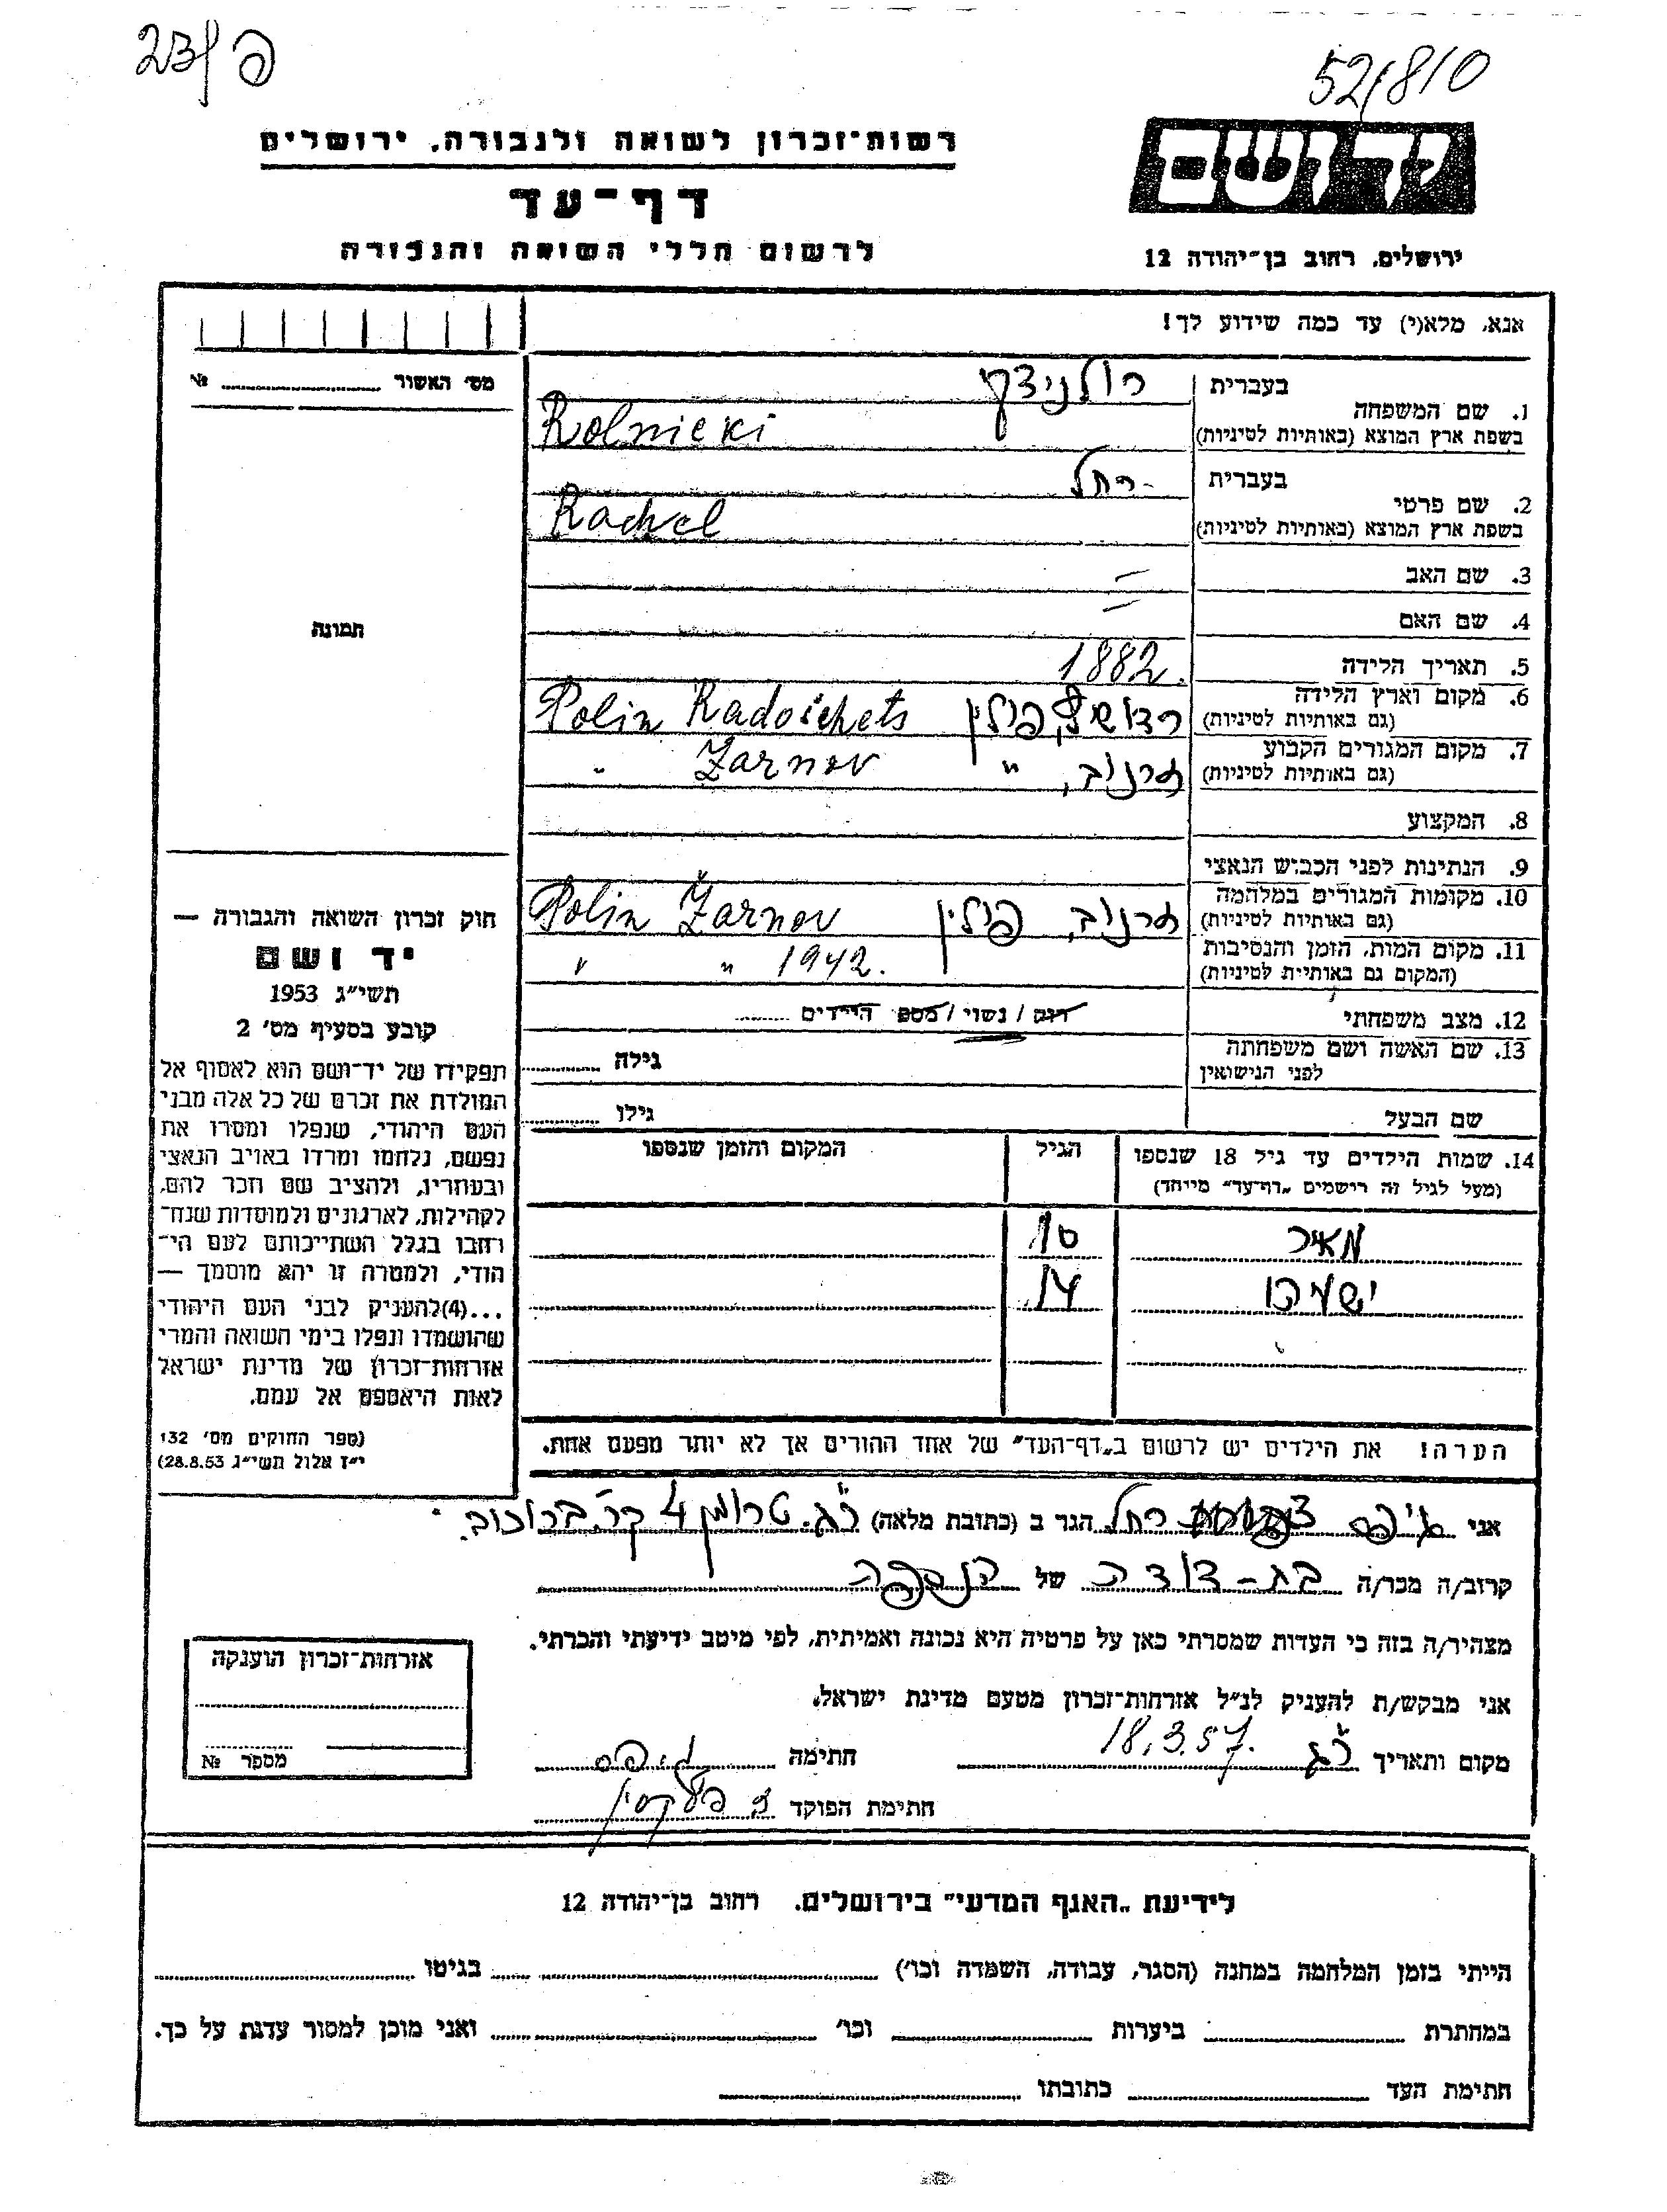 23/פ
52/810
רשות־זכרון לשואה ולגבורה, ירושלים
דף־עד
לרשום חללי השואה והגבורה
יד ושם
ירושלים, רחוב בן־יהודה 12
אנא, מלא(י) עד כמה שידוע לך!
מס׳ האשור № 
תמונה
1. שם המשפחה
בעברית רולניצקי
בשפת ארץ המוצא (באותיות לטיניות) Rolnicki
2. שם פרטי
בעברית רחל
בשפת ארץ המוצא (באותיות לטיניות) Rachel
3. שם האב —
4. שם האם —
5. תאריך הלידה 1882.
6. מקום וארץ הלידה
(גם באותיות לטיניות) פולין Polin Radoichets
7. מקום המגורים הקבוע
(גם באותיות לטיניות) זרנוב, " Żarnov "
8. המקצוע
9. הנתינות לפני הכבוש הנאצי
10. מקומות המגורים במלחמה
(גם באותיות לטיניות) זרנוב, פולין Polin Żarnov
11. מקום המות, הזמן והנסיבות
(המקום גם באותיות לטיניות) " " 1942.
12. מצב משפחתי רווק / נשוי / מספר הילדים
13. שם האשה ושם משפחתה
לפני הנישואין גילה
שם הבעל גילו
14. שמות הילדים עד גיל 18 שנספו
(מעל לגיל זה רישמים „דף־עד" מייחד)
הגיל
המקום והזמן שנספו
מאיר 10
14
הערה! את הילדים יש לרשום ב„דף־העד" של אחד ההורים אך לא יותר מפעם אחת.
חוק זכרון השואה והגבורה —
יד ושם
תשי״ג 1953
קובע בסעיף מס׳ 2
תפקידו של יד־ושם הוא לאסוף אל
המולדת את זכרם של כל אלה מבני
העם היהודי, שנפלו ומסרו את
נפשם, נלחמו ומרדו באויב הנאצי
ובעוזריו, ולהציב שם וזכר להם,
לקהילות, לארגונים ולמוסדות שנח־
רבו בגלל השתייכותם לעם הי־
הודי, ולמטרה זו יהא מוסמך —
...(4) להעניק לבני העם היהודי
שהושמדו ונפלו בימי השואה והמרי
אזרחות־זכרון של מדינת ישראל
לאות היאספם אל עמם.
(ספר החוקים מס׳ 132
י״ז אלול תשי״ג 28.8.53)
אני רחל הגר ב (כתובת מלאה) ר״ג. טרומן 4 קר. ברוכוב.
קרוב/ה מכר/ה בת-דודה של הנספה
מצהיר/ה בזה כי העדות שמסרתי כאן על פרטיה היא נכונה ואמיתית, לפי מיטב ידיעתי והכרתי.
אני מבקש/ת להעניק לנ״ל אזרחות־זכרון מטעם מדינת ישראל.
מקום ותאריך ר״ג 18.3.57. חתימה
חתימת הפוקד
אזרחות־זכרון הוענקה
מספר №
לידיעת „האגף המדעי" בירושלים, רחוב בן־יהודה 12
הייתי בזמן המלחמה במחנה (הסגר, עבודה, השמדה וכו׳) בגיטו
במחתרת ביערות וכו׳ ואני מוכן למסור עדות על כך.
חתימת העד כתובתו